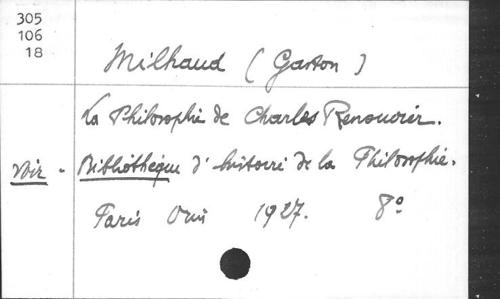 305
106
18
Milhaud (Gaston)
La Philosophie de Charles Renouvier.
Voir - Bibliothèque d'histoire de la Philosophie.
Paris 1927. 8°